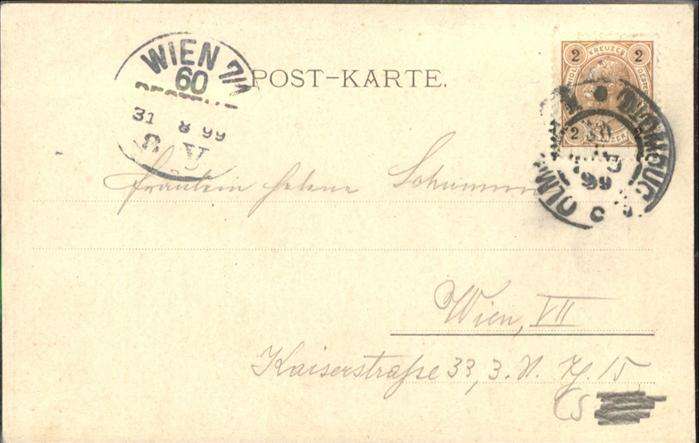 WIEN 7/1
60
BESTELLT
31 8 99
8 V
POST-KARTE.
2 KREUZER 2
2
OLMÜTZ OLOMOUC
99
Fräulein Helene Schumm
Wien, VII
Kaiserstraße 33, 3. 15
CS